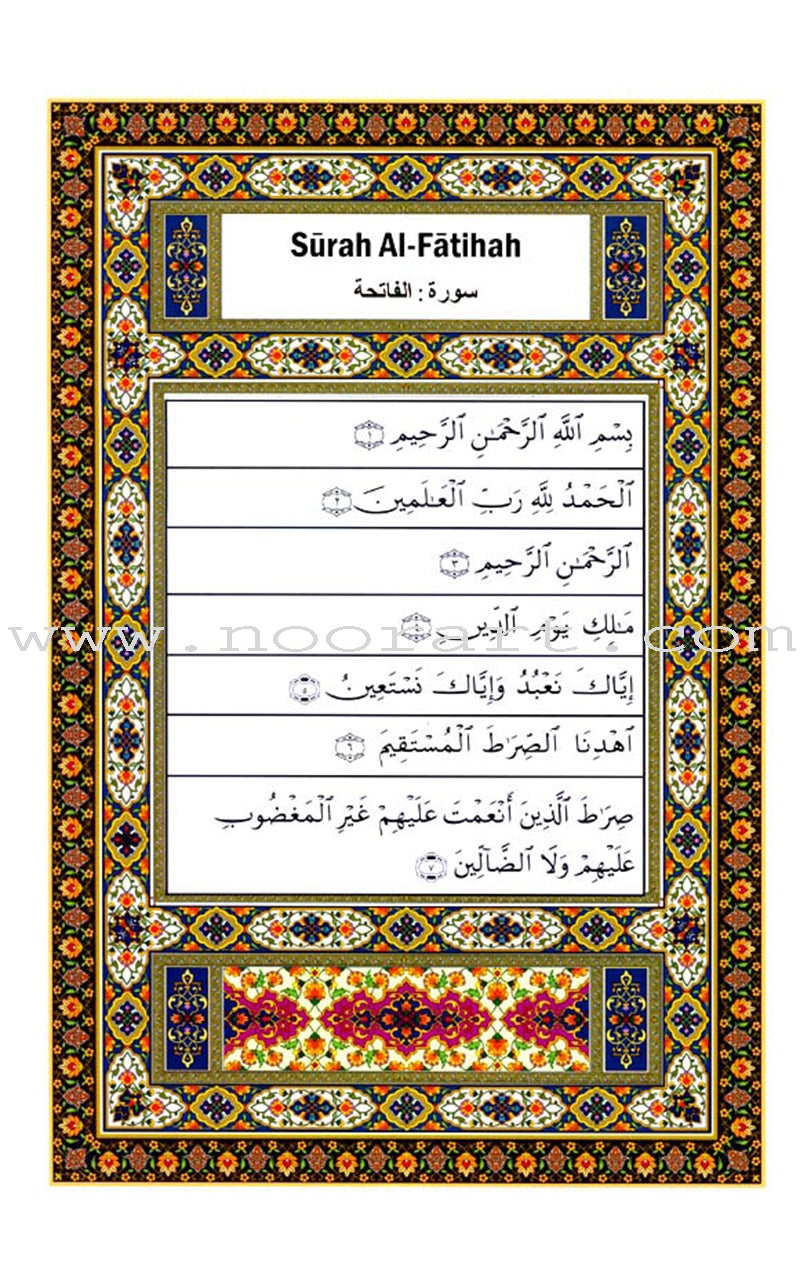 Sūrah Al-Fātihah
سورة : الفاتحة
بِسْمِ ٱللَّهِ ٱلرَّحْمَـٰنِ ٱلرَّحِيمِ ١
ٱلْحَمْدُ لِلَّهِ رَبِّ ٱلْعَـٰلَمِينَ ٢
ٱلرَّحْمَـٰنِ ٱلرَّحِيمِ ٣
مَـٰلِكِ يَوْمِ ٱلدِّينِ ٤
www.noorart.com
إِيَّاكَ نَعْبُدُ وَإِيَّاكَ نَسْتَعِينُ ٥
ٱهْدِنَا ٱلصِّرَٰطَ ٱلْمُسْتَقِيمَ ٦
صِرَٰطَ ٱلَّذِينَ أَنْعَمْتَ عَلَيْهِمْ غَيْرِ ٱلْمَغْضُوبِ
عَلَيْهِمْ وَلَا ٱلضَّآلِّينَ ٧